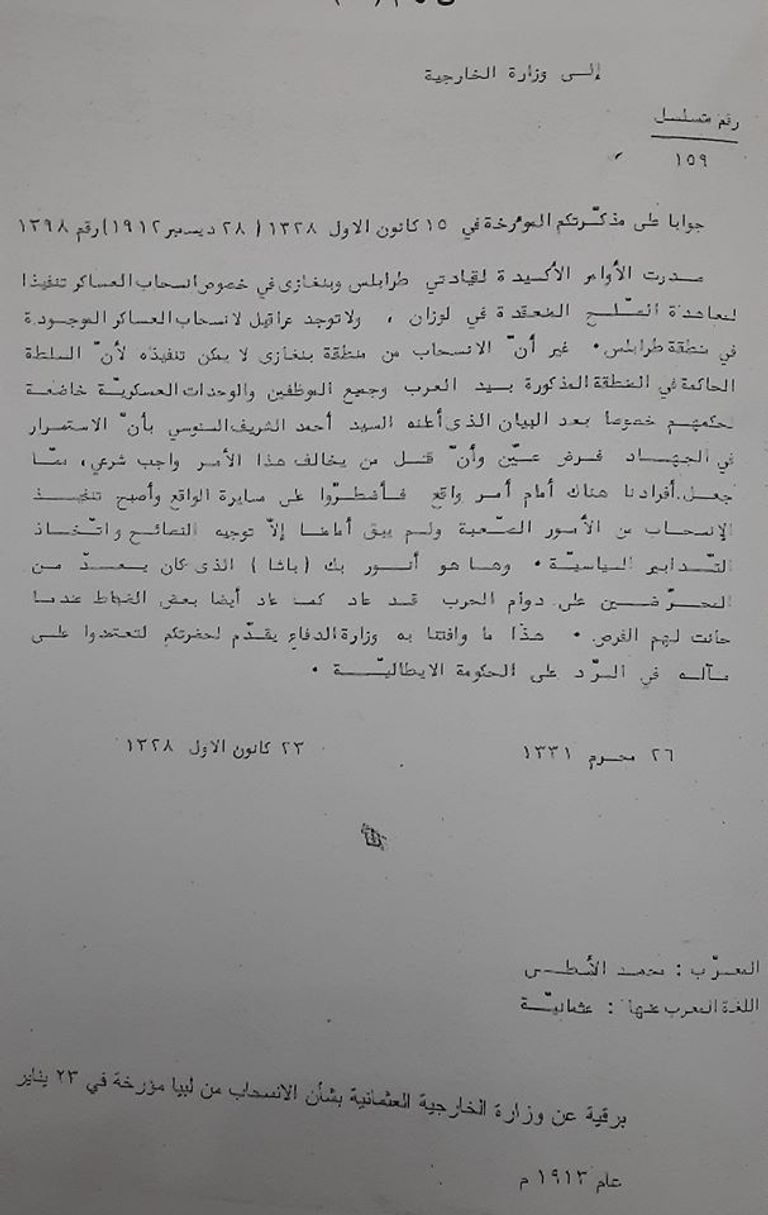 إلى وزارة الخارجية
رقم متسلسل
١٥٩
جوابا على مذكّرتكم المؤرخة في ١٥ كانون الاول ١٣٢٨ ( ٢٨ ديسمبر ١٩١٢) رقم ١٣٩٨
صدرت الأوامر الأكيدة لقيادتي طرابلس وبنغازى في خصوص انسحاب العساكر تنفيذا
لمعاهدة الصّلح المنعقدة في لوزان ، ولا توجد عراقيل لانسحاب العساكر الموجودة
في منطقة طرابلس. غير أنّ الانسحاب من منطقة بنغازى لا يمكن تنفيذه لأنّ السلطة
الحاكمة في المنطقة المذكورة بيد العرب وجميع الموظفين والوحدات العسكريّة خاضعة
لحكمهم خصوصا بعد البيان الذى أعلنه السيد أحمد الشريف السنوسي بأنّ الاستمرار
في الجهاد فرض عيّن وأنّ قتل من يخالف هذا الأمر واجب شرعي، ممّا
جعل أفرادنا هناك أمام أمر واقع فأضطرّوا على مسايرة الواقع وأصبح تنفيذ
الإنسحاب من الأمور الصّعبة ولم يبق أمامنا إلاّ توجيه النصائح واتّخاذ
التّدابير السياسيّة . وها هو أنور بك (باشا) الذى كان يعدّ من
المحرّضين على دوام الحرب قد عاد كما عاد أيضا بعض الضباط عندما
حانت لهم الفرص . هذا ما وافتنا به وزارة الدفاع يقدّم لحضرتكم لتعتمدوا على
مآله في الرّد على الحكومة الايطاليّة .
٢٦ محرم ١٣٣١ ٢٣ كانون الاول ١٣٢٨
المعرّب : محمد الأسطى
اللغة المعرب عنها : عثمانيّة
برقية عن وزارة الخارجية العثمانية بشأن الانسحاب من لبيا مؤرخة في ٢٣ يناير
عام ١٩١٣ م